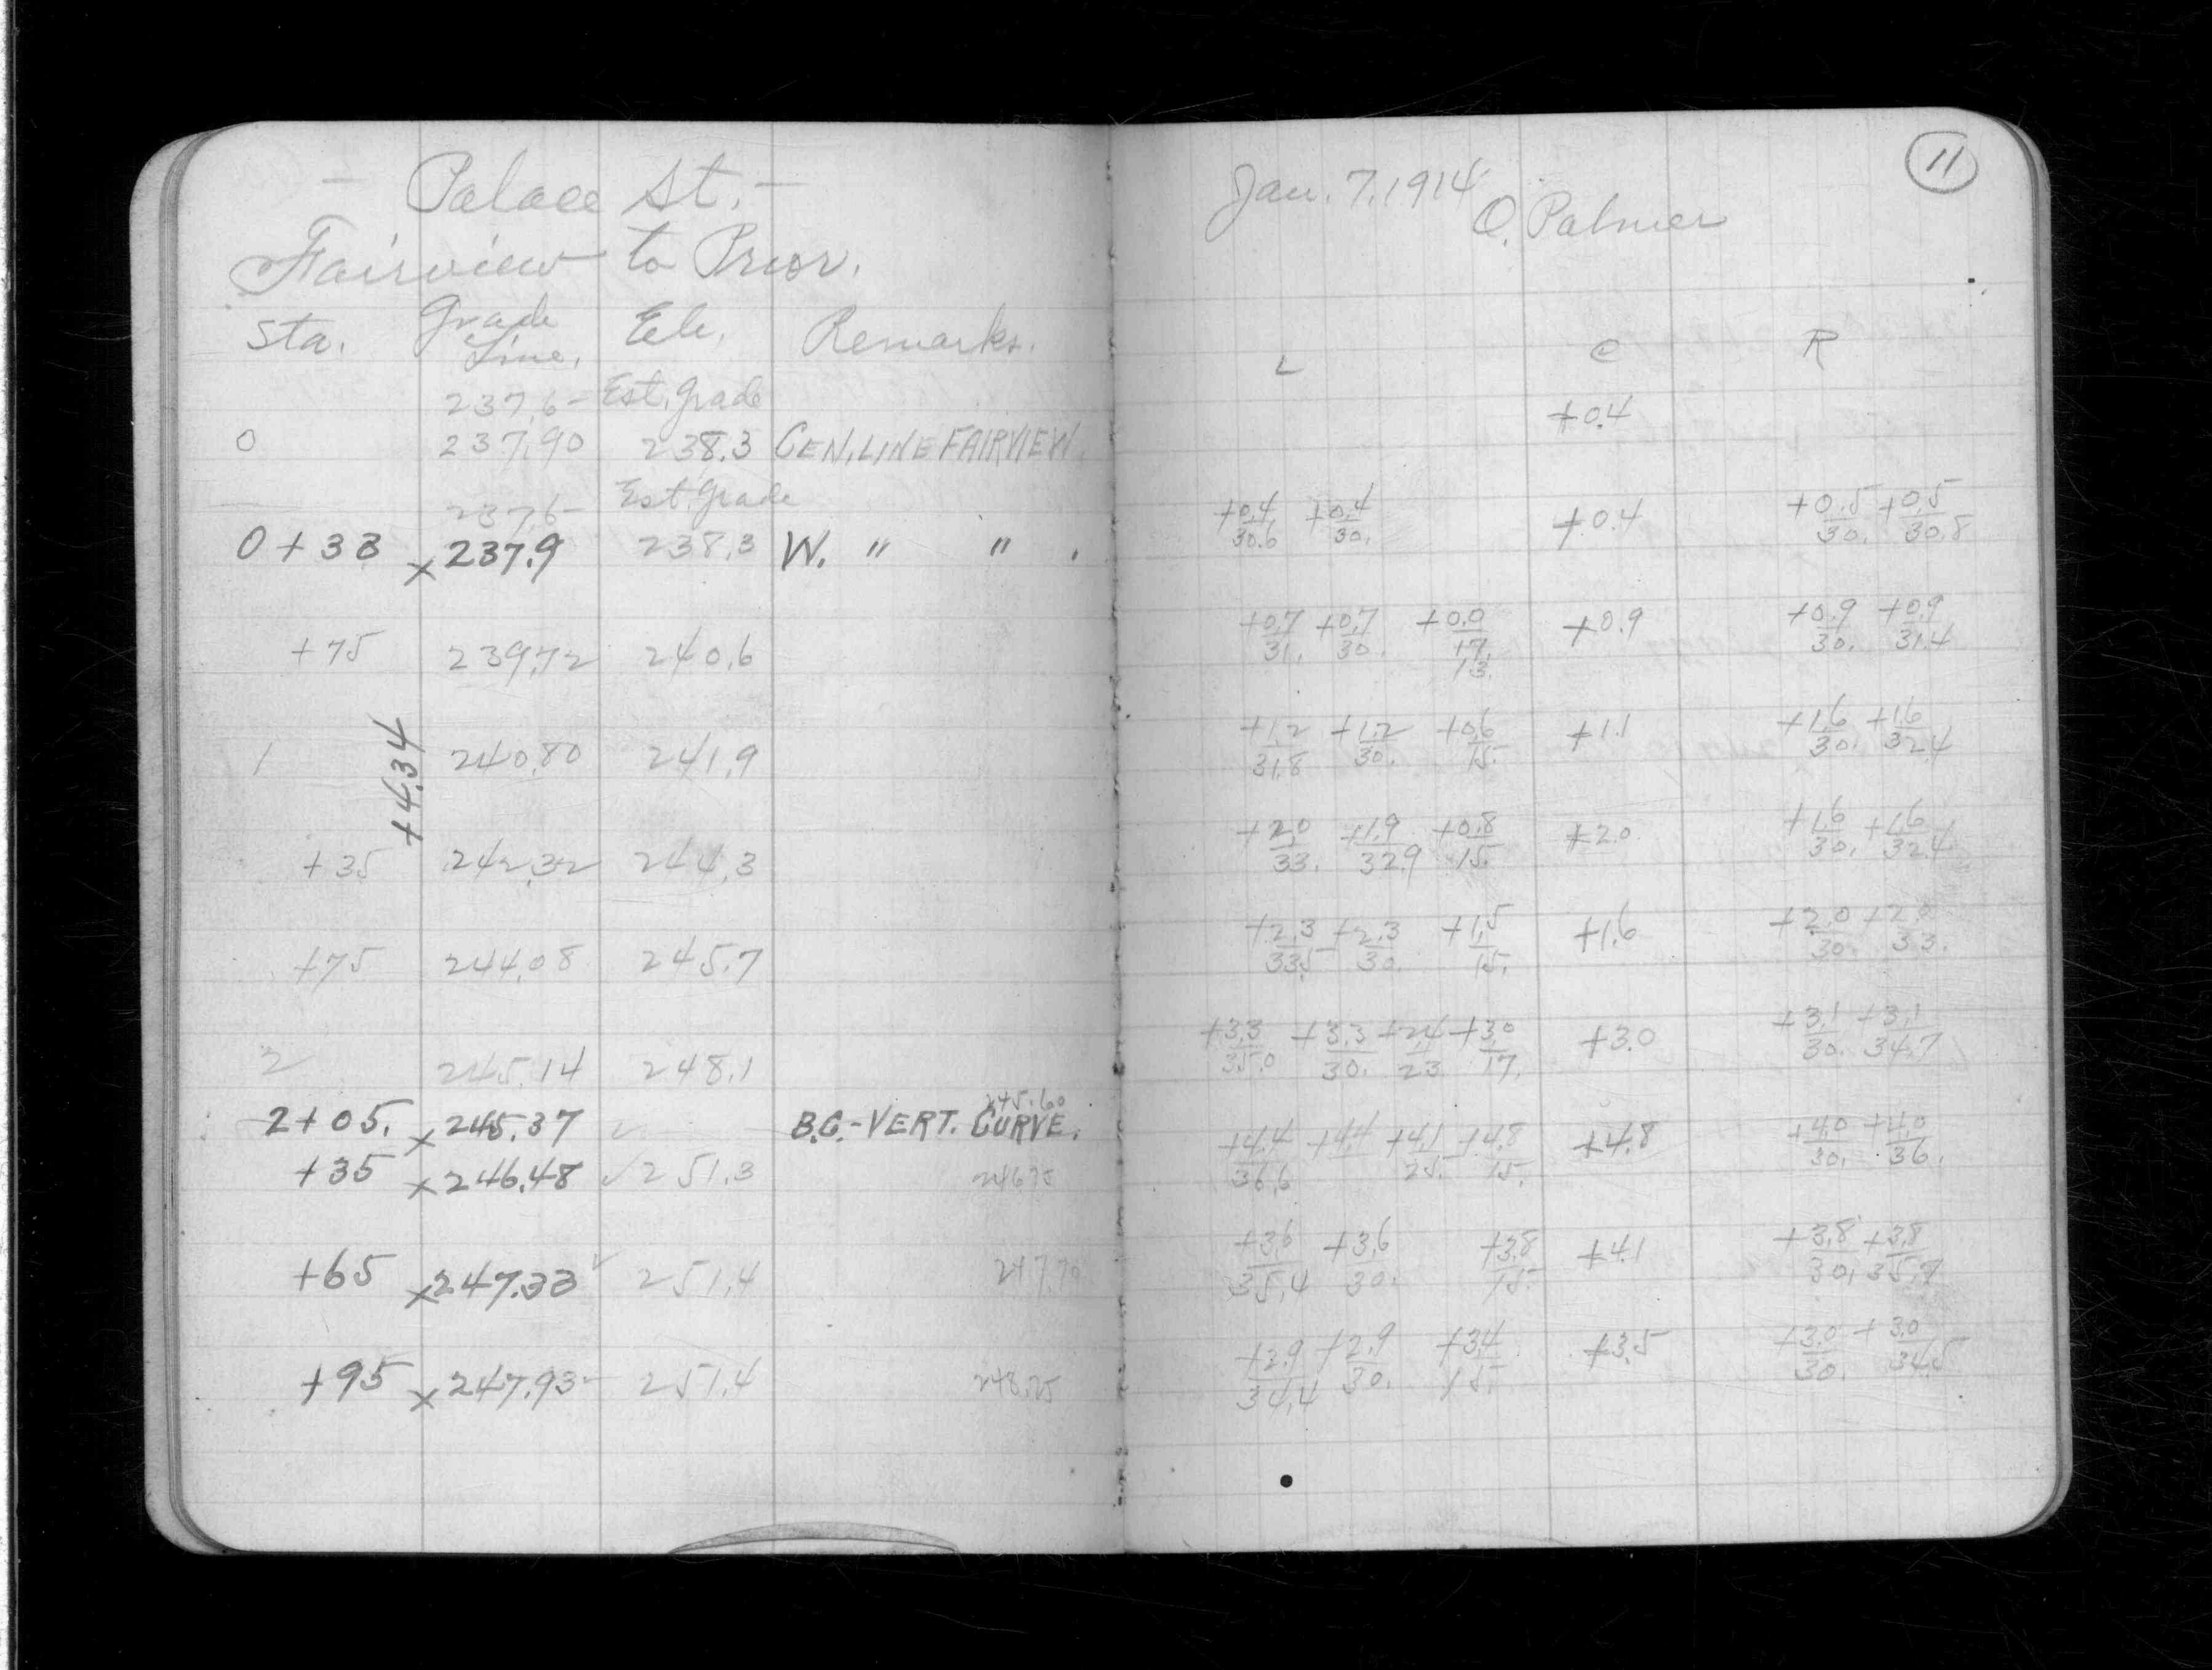 - Palace St. -
Fairview to Prior.
Sta. Grade Line. Ele. Remarks.
237.6- Est. Grade
0 237.90 238.3 CEN. LINE FAIRVIEW.
237.6- Est. Grade
0 + 33 x 237.9 238.3 W. " " .
+ 75 239.72 240.6
1 240.80 241.9
+ 4.34
+ 35 242.32 244.3
+ 75 244.08 245.7
2 245.14 248.1
245.60
2 + 05. x 245.37 ✓ B.C.-VERT. CURVE.
+ 35 x 246.48 ✓ 251.3 246.75
+ 65 x 247.33 ✓ 251.4 247.70
+ 95 x 247.93 - 251.4 248.25
11
Jan. 7. 1914 O. Palmer
L C R
+0.4
+0.4 +0.4 +0.4 +0.5 +0.5
30.6 30. 30. 30.8
+0.7 +0.7 +0.0 +0.9 +0.9 +0.9
31. 30. 17. 30. 31.4
13.
+1.2 +1.2 +0.6 +1.1 +1.6 +1.6
31.8 30. 15. 30. 32.4
+2.0 +1.9 +0.8 +2.0 +1.6 +1.6
33. 32.9 15. 30. 32.4
+2.3 +2.3 +1.5 +1.6 +2.0 +2.0
33.5 30. 15. 30. 33.
+3.3 +3.3 +2.4 +3.0 +3.0 +3.1 +3.1
35.0 30. 23 17. 30. 34.7
+4.4 +4.4 +4.1 +4.8 +4.8 +4.0 +4.0
36.6 25. 15. 30. 36.
+3.6 +3.6 +3.8 +4.1 +3.8 +3.8
35.4 30. 15. 30. 35.9
+2.9 +2.9 +3.4 +3.5 +3.0 +3.0
34.4 30. 15. 30. 34.5